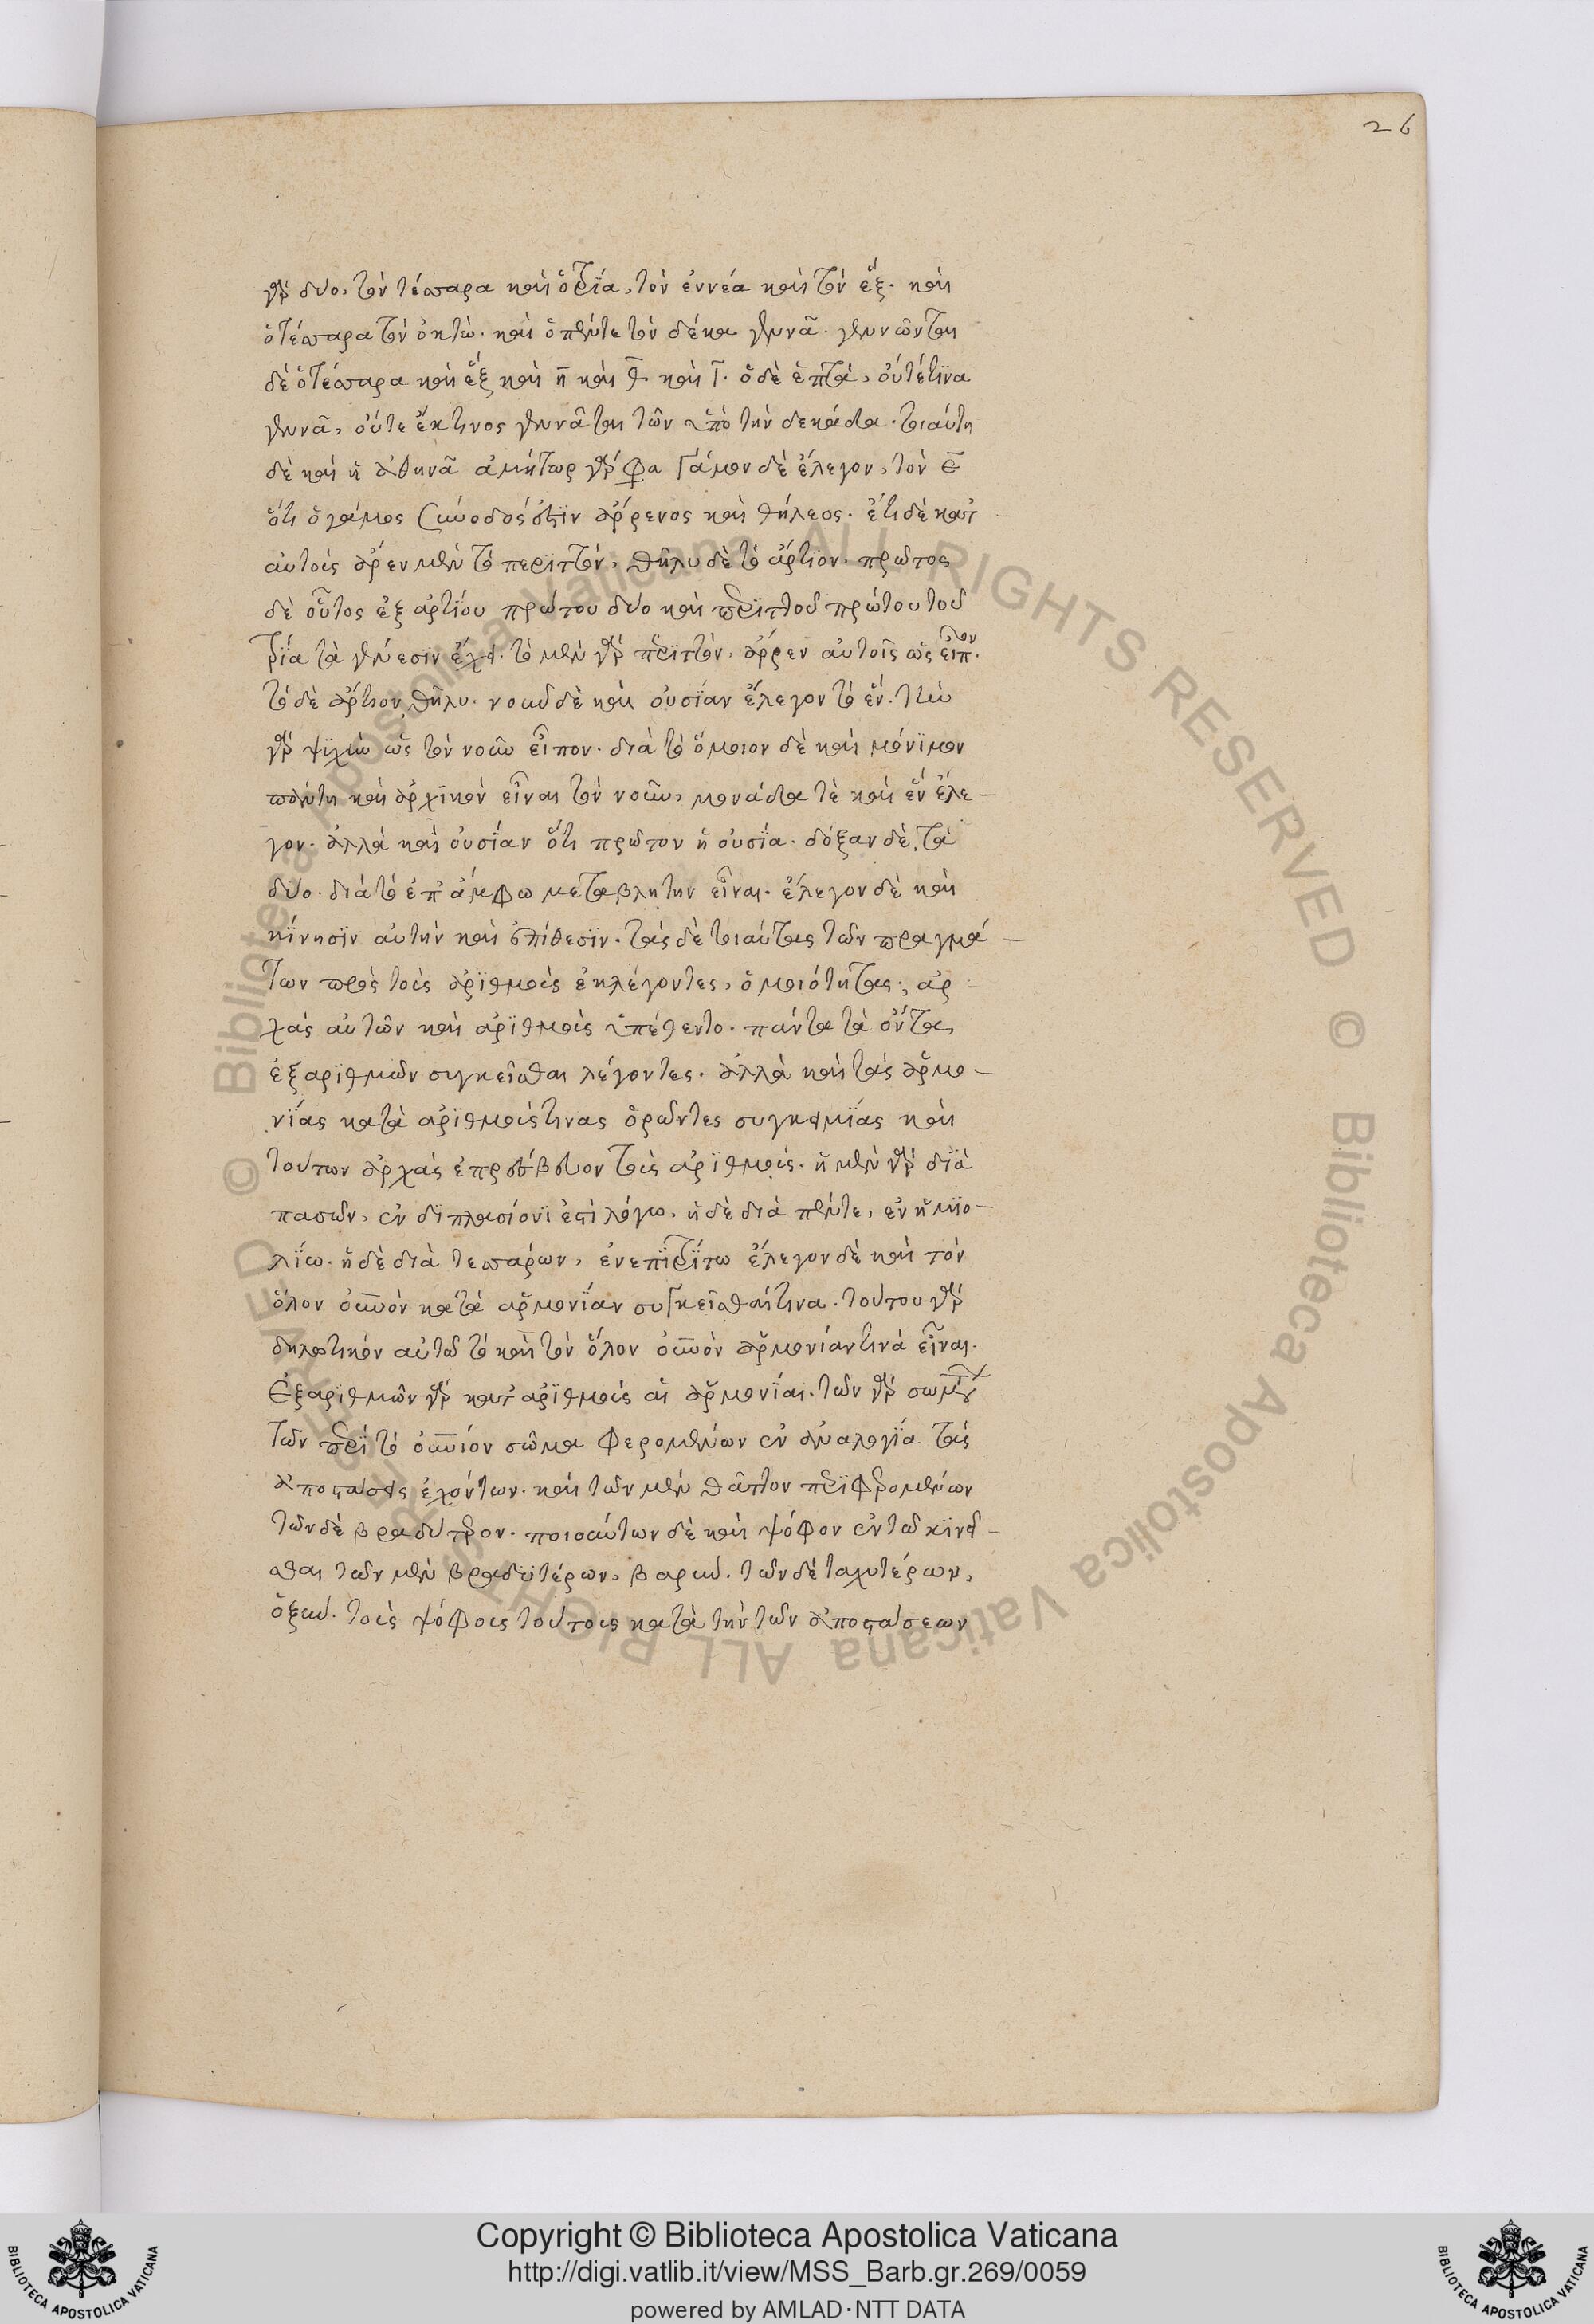 26
γὰρ δύο, τὸν τέσσαρα καὶ ὁ τρία, τὸν ἐννέα καὶ τὸν ἕξ. καὶ
ὁ τέσσαρα τὸν ὀκτώ. καὶ ὁ πέντε τὸν δέκα γεννᾶ. γεννῶνται
δὲ ὁ τέσσαρα καὶ ἕξ καὶ η̄ καὶ θ̄ καὶ ῑ. ὁ δὲ ἑπτὰ, οὔτέ τινα
γεννᾶ, οὔτε ἔκ τινος γεννᾶται τῶν ὑπὸ τὴν δεκάδα. τοιαύτη
δὲ καὶ ἡ ἀθηνᾶ ἀμήτωρ γὰρ Γάμον δὲ ἔλεγον, τὸν ε̄
ὅτι ὁ γάμος σύνοδός ἐστϊν ἄρρενος καὶ θήλεος. ἔτι δὲ κατ
αὐτοὺς ἄρεν μὲν τὸ περιττόν, θῆλυ δὲ τὸ ἄρτιον. πρῶτος
δὲ οὗτος ἐξ ἀρτίου πρώτου δύο καὶ περϊττοῦ πρώτου τοῦ
τρΐα τὰ γένεσϊν ἔχει. τὸ μὲν γὰρ περϊττὸν, ἄρρεν αὐτοῖς ὡς εἶπον.
τὸ δὲ ἄρτιον, θῆλυ. νοῦν δὲ καὶ οὐσΐαν ἔλεγον τὸ ἕν. τὴν
γὰρ ψϊχὴν ὡς τὸν νοῦν εἶπον. διὰ τὸ ὅμοιον δὲ καὶ μόνϊμον
πάντη καὶ ἀρχϊκὸν εἶναι τὸν νοῦν, μονάδα τὲ καὶ ἓν ἔλε-
γον. ἀλλὰ καὶ οὐσΐαν ὅτι πρῶτον ἡ οὐσΐα. δόξαν δὲ, τὰ
δύο. διὰ τὸ ἐπ' ἄμφω μεταβλητην εἶναι. ἔλεγον δὲ καὶ
κΐνησϊν αὐτὴν καὶ ἐπίθεσϊν. τὰς δὲ τοιαύτας τῶν πραγμά-
των πρὸς τοὺς ἀρϊθμοὺς ἐκλέγοντες, ὁμοιότητας, ἀρ-
χὰς αὐτῶν καὶ ἀρϊθμοὺς ὑπέθεντο. πάντα τὰ ὄντα,
ἐξ αρϊθμῶν συγκεῖσθαι λέγοντες. ἀλλὰ καὶ τὰς ἁρμο-
νΐας κατὰ ἀρϊθμούς τινας ὁρῶντες συγκειμΐας καὶ
τούτων ἀρχὰς τοὺς ἀρϊθμούς. ἡ μὲν γὰρ δϊὰ
πασῶν, ἐν δϊπλασίονϊ ἐστὶ λόγω, ἡ δὲ διὰ πέντε, ἐν ἡμϊο-
λΐω. ἡ δὲ διὰ τεσσάρων, ἐν επϊτρΐτω ἔλεγον δὲ καὶ τὸν
ὅλον οὐνὸν κατὰ ἁρμονΐαν συγκεῖσθαί τινα. τούτου γὰρ
δηλωτικὸν αὐτοῦ τὸ καὶ τὸν ὅλον οὐνὸν ἁρμονίαν τινὰ εἶναι.
Ἐξ αρϊθμῶν γὰρ κατ' ἀρϊθμοὺς αἱ ἁρμονΐαι. τῶν γὰρ σωμάτων
τῶν περϊ τὸ οὐνίον σῶμα φερομένων ἐν ἀναλογΐα τὰς
ἀποστάσεις ἐχόντων. καὶ τῶν μὲν θᾶττον περϊφερομένων
τῶν δὲ βραδύτερον. ποιούντων δὲ καὶ ψόφον ἐν τῶ κϊνεῖ-
σθαι τῶν μὲν βραδϋτέρων, βαρύν. τῶν δὲ ταχυτέρων,
ὀξύν. τοὺς ψόφους τούτους κατὰ τὴν τῶν ἀποστάσεων
Copyright © Biblioteca Apostolica Vaticana
http://digi.vatlib.it/view/MSS_Barb.gr.269/0059
powered by AMLAD·NTT DATA